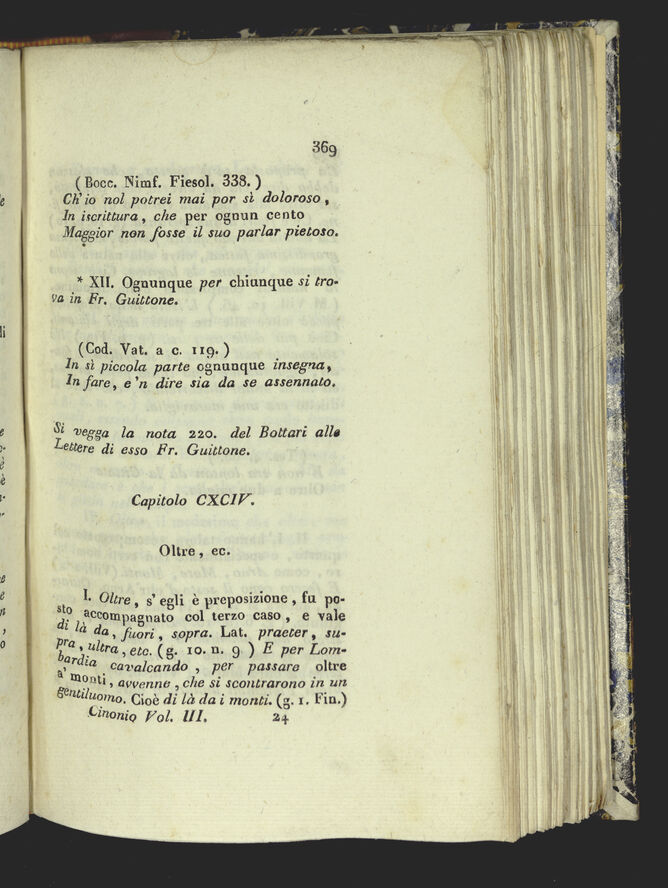 369
(Bocc. Nimf. Fiesol. 338.)
Ch'io nol potrei mai por sì doloroso,
In iscrittura, che per ognun cento
Maggior non fosse il suo parlar pietoso.
* XII. Ognunque per chiunque si tro-
va in Fr. Guittone.
(Cod. Vat. a c. 119.)
In sì piccola parte ognunque insegna,
In fare, e'n dire sia da se assennato.
Si vegga la nota 220. del Bottari alle
Lettere di esso Fr. Guittone.
Capitolo CXCIV.
Oltre, ec.
I. Oltre, s'egli è preposizione, fu po-
sto accompagnato col terzo caso, e vale
di là da, fuori, sopra. Lat. praeter, su-
pra, ultra, etc. (g. 10. n. 9) E per Lom-
bardia cavalcando, per passare oltre
a' monti, avvenne, che si scontrarono in un
gentiluomo. Cioè di là da i monti. (g. 1. Fin.)
Cinonio Vol. III. 24